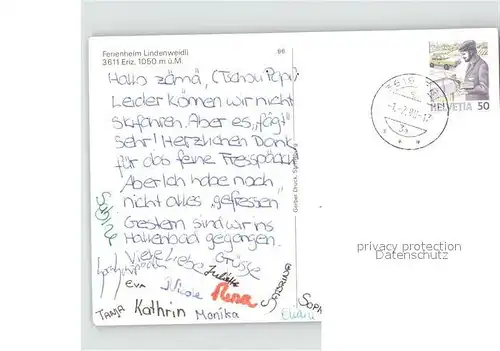 Ferienheim Lindenweidli
3611 Eriz, 1050 m ü.M.
86
Hallo zämä, (Tschou Päpu)
Leider können wir nicht
Skifahren. Aber es „fägt"
sehr! Herzlichen Dank
für das feine Fresspäckli.
Aber Ich habe noch
nicht alles „gefressen
Gestern sind wir ins
Hallenbad gegangen.
Viele Liebe Grüsse
Eva
Nicole
Rena
SABRINA
SOPH
TANJA
Kathrin
Monika
HELVETIA 50
privacy protection
Datenschutz